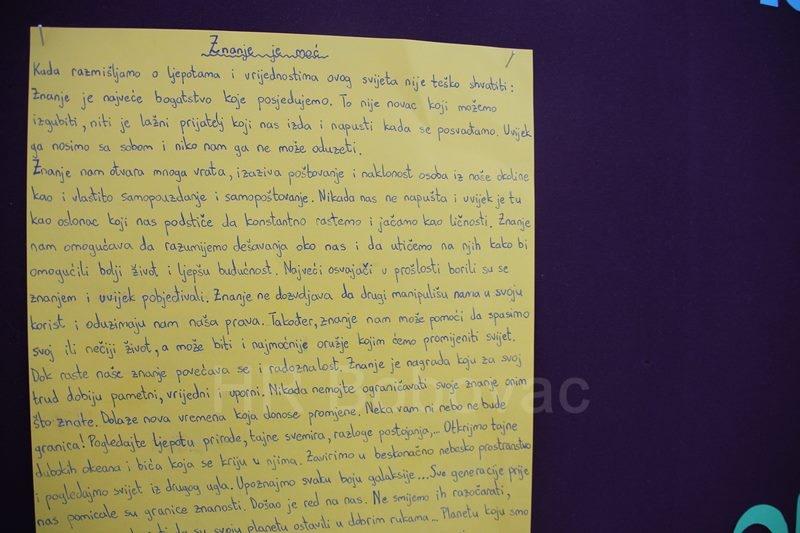 Znanje je moć
Kada razmišljamo o ljepotama i vrijednostima ovog svijeta nije teško shvatiti:
Znanje je najveće bogatstvo koje posjedujemo. To nije novac koji možemo
izgubiti, niti je lažni prijatelj koji nas izda i napusti kada se posvađamo. Uvijek
ga nosimo sa sobom i niko nam ga ne može oduzeti.
Znanje nam otvara mnoga vrata, izaziva poštovanje i naklonost osoba iz naše okoline
kao i vlastito samopouzdanje i samopoštovanje. Nikada nas ne napušta i uvijek je tu
kao oslonac koji nas podstiče da konstantno rastemo i jačamo kao ličnosti. Znanje
nam omogućava da razumijemo dešavanja oko nas i da utičemo na njih kako bi
omogućili bolji život i ljepšu budućnost. Najveći osvajači u prošlosti borili su se
znanjem i uvijek pobjeđivali. Znanje ne dozvoljava da drugi manipulišu nama u svoju
korist i oduzimaju nam naša prava. Također, znanje nam može pomoći da spasimo
svoj ili nečiji život, a može biti i najmoćnije oružje kojim ćemo promijeniti svijet.
Dok raste naše znanje povećava se i radoznalost. Znanje je nagrada koju za svoj
trud dobiju pametni, vrijedni i uporni. Nikada nemojte ograničavati svoje znanje onim
što znate. Dolaze nova vremena koja donose promjene. Neka vam ni nebo ne bude
granica! Pogledajte ljepotu prirode, tajne svemira, razloge postojanja,... Otkrijmo tajne
dubokih okeana i bića koja se kriju u njima. Zavirimo u beskonačno nebesko prostranstvo
i pogledajmo svijet iz drugog ugla. Upoznajmo svaku boju galaksije... Sve generacije prije
nas pomicale su granice znanosti. Došao je red na nas. Ne smijemo ih razočarati,
da su svoju planetu ostavili u dobrim rukama... Planetu koju smo
HR Bobovac